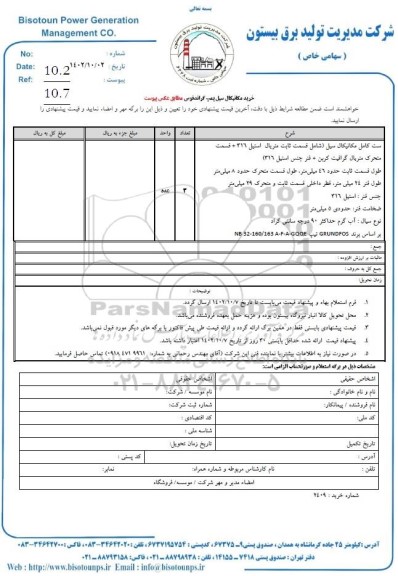 بسمه تعالی
Bisotoun Power Generation
Management CO.
شرکت مدیریت تولید برق بیستون
( سهامی خاص )
No: شماره :
Date: ۱۴۰۲/۱۰/۰۲ تاریخ :
پیوست :
10.2
10.7
خرید مکانیکال سیل پمپ گراندفوس مطابق عکس پیوست
خواهشمند است ضمن مطالعه شرایط ذیل با دقت، آخرین قیمت پیشنهادی خود را تعیین و ذیل این را برگه مهر و امضاء نمایید و قیمت پیشنهادی را
ارسال نمایید.
شرح تعداد واحد مبلغ جزء به ریال مبلغ کل به ریال
ست کامل مکانیکال سیل (شامل قسمت ثابت متریال استیل ۳۱۶ + قسمت
متحرک متریال گرافیت کربن + فنر جنس استیل ۳۱۶)
طول قسمت ثابت حدود ۴۶ میلی‌متر، طول قسمت متحرک حدود ۸ میلی‌متر
طول فنر ۲۴ میلی متر، قطر داخلی قسمت ثابت و متحرک ۲۹ میلی‌متر
جنس فنر : استیل ۳۱۶
ضخامت فنر: حدودی ۵ میلی‌متر
نوع سیال : آب گرم حداکثر ۹۰ درجه سانتی گراد
بر اساس برند GRUNDFOS تیپ NB 32-160/163 A-F-A-GQQE
۲ عدد
جمع :
مالیات بر ارزش افزوده :
جمع کل به حروف :
زمان تحویل:
توضیحات :
۱. فرم استعلام بهاء و پیشنهاد قیمت می‌بایست تا تاریخ ۱۴۰۲/۱۰/۷ ارسال گردد.
۲. محل تحویل کالا انبار نیروگاه بیستون بوده و هزینه حمل بعهده فروشنده می‌باشد.
۳. قیمت پیشنهادی بایستی فقط در همین برگ ارائه گردد و ارائه قیمت طی پیش فاکتور یا برگه های دیگر مورد قبول نمی‌باشد.
۴. پیشنهاد قیمت ارائه شده حداقل بایستی ۳۰ روز از تاریخ ۱۴۰۲/۱۰/۷ اعتبار داشته باشد.
۵. در صورت نیاز به اطلاعات بیشتر با نماینده فنی این شرکت (آقای مهندس رحمانی به شماره: ۹۹۶۱ ۴۷۱ ۰۹۱۸) تماس حاصل فرمایید.
ParsNamadData
۰۲۱-۸۸۳۴۹۶۷۰-۵
مشخصات ذیل در برگه استعلام و صورتحساب الزامی است:
اشخاص حقیقی اشخاص حقوقی
نام و نام خانوادگی : نام موسسه / شرکت:
نام فروشنده / پیمانکار: شماره ثبت شرکت:
کد ملی: کد اقتصادی :
شناسه ملی :
تاریخ تکمیل زمان تحویل:
آدرس : کد پستی :
تلفن : نام کارشناس مربوطه و شماره همراه: نمابر:
امضاء مدیر و مهر شرکت / موسسه/ فروشگاه
شماره خرید : ۲۴۰۹
آدرس: کیلومتر ۲۵ جاده کرمانشاه به همدان، صندوق پستی: ۶۷۳۷۵، کدپستی : ۶۷۳۷۱۹۵۷۵۴ ، تلفن: ۳۴۶۴۴۰۲۰-۰۸۳ ، فاکس: ۳۴۶۴۲۷۰۰-۰۸۳
دفتر تهران : صندوق پستی ۷۴۱۸ ـ ۱۴۱۵۵ ، تلفن: ۸۸۷۹۸۹۳۸ ـ ۰۲۱ ، فاکس: ۸۸۷۹۳۱۵۸ ـ ۰۲۱
Web : http://www.bisotounps.ir Email : info@bisotounps.ir